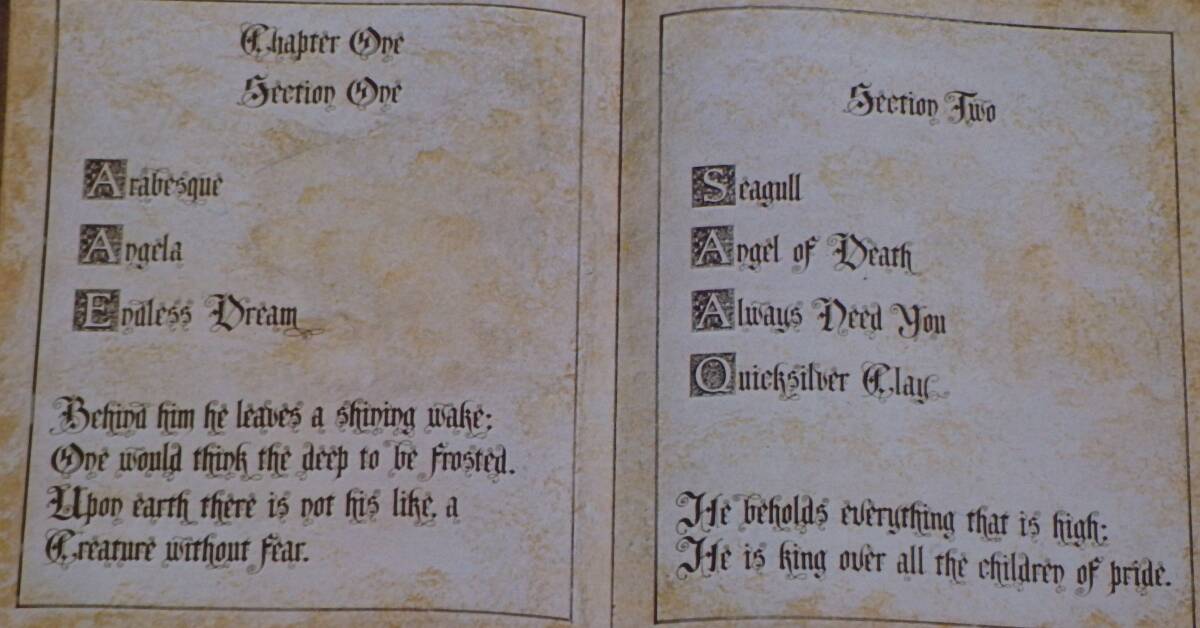 Chapter One
Section One
Arabesque
Angela
Endless Dream
Behind him he leaves a shining wake;
One would think the deep to be frosted.
Upon earth there is not his like, a
Creature without fear.
Section Two
Seagull
Angel of Death
Always Need You
Quicksilver Clay
He beholds everything that is high;
He is king over all the children of pride.